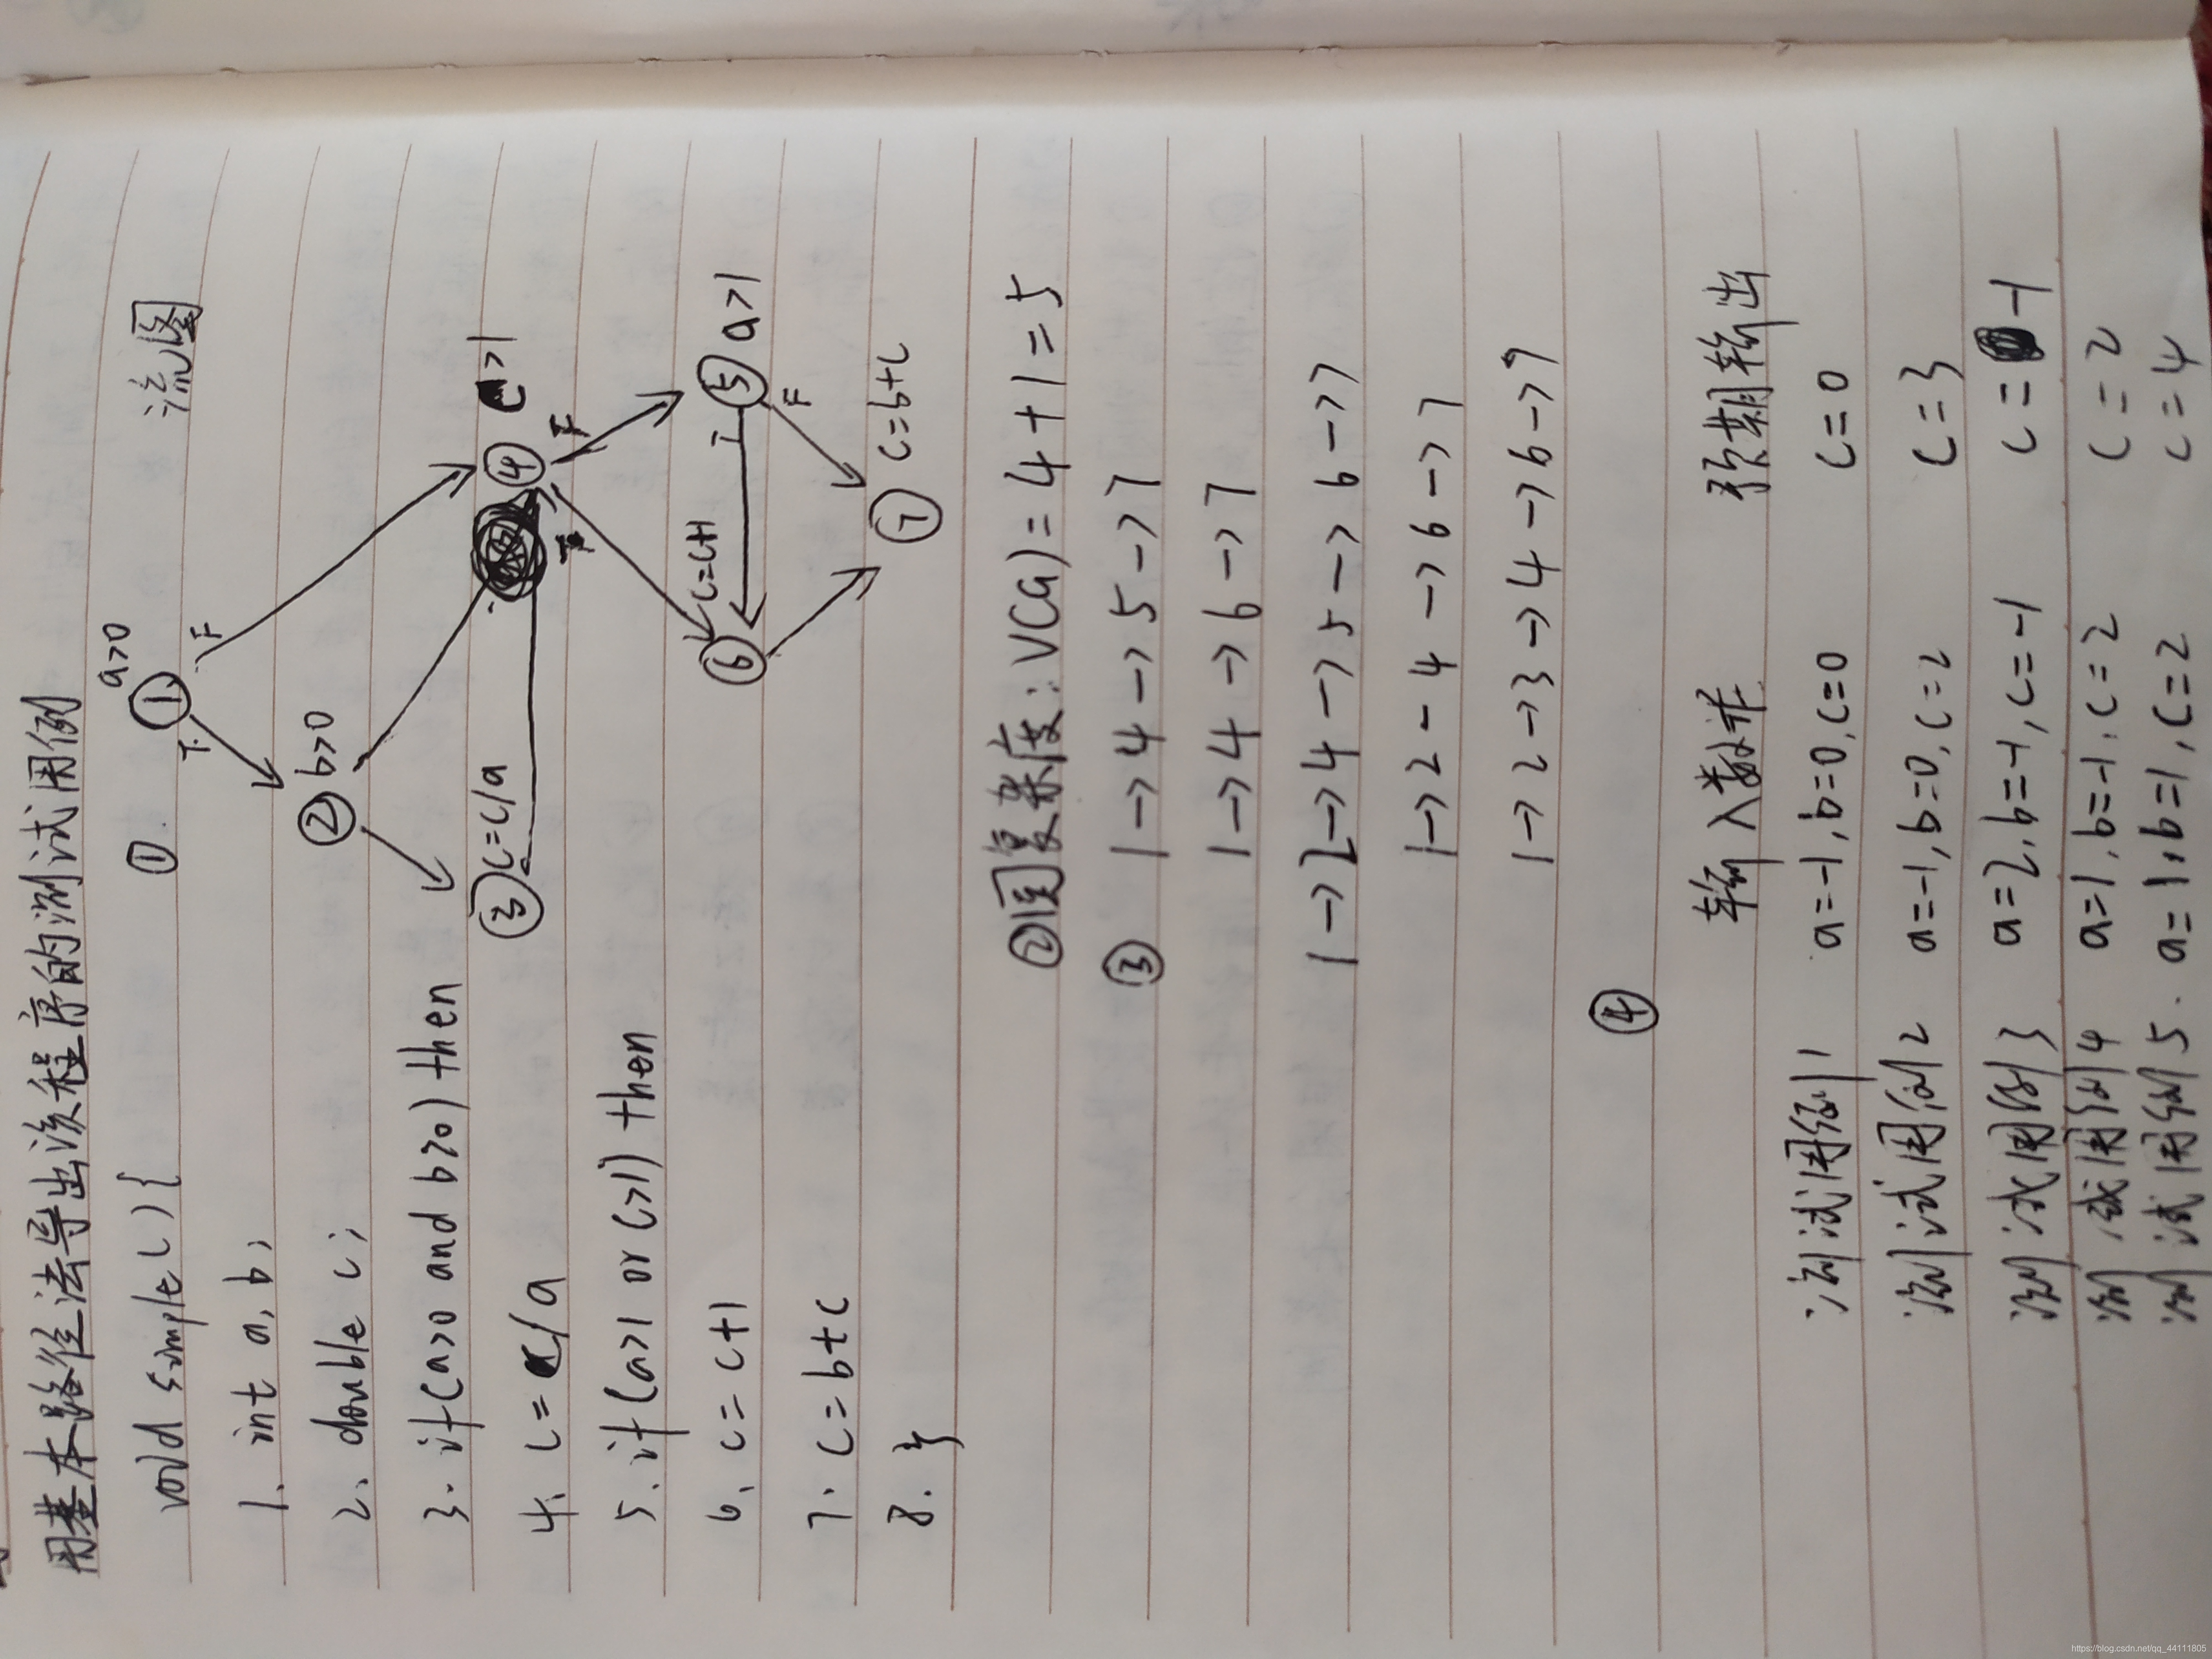 用基本路径法导出该程序的测试用例
void simple() {
1. int a, b;
2. double c;
3. if (a>0 and b>0) then
4. c = c/a
5. if (a>1 or c>1) then
6. c = c+1
7. c = b+c
8. }
① 流图
a>0
①
T F
② b>0
③ c=c/a
④ c>1
T F
c=c+1
⑥
T
⑤ a>1
F
⑦ c=b+c
②圈复杂度: V(G) = 4+1=5
③ 1->4->5->7
1->4->6->7
1->2->4->5->6->7
1->2-4->6->7
1->2->3->4->6->7
④
输入数据 预期输出
测试用例1 a=-1, b=0, c=0 c=0
测试用例2 a=-1, b=0, c=2 c=3
测试用例3 a=2, b=-1, c=-1 c=-1
测试用例4 a=1, b=-1, c=2 c=2
测试用例5. a=1, b=1, c=2 c=4
https://blog.csdn.net/qq_44111805